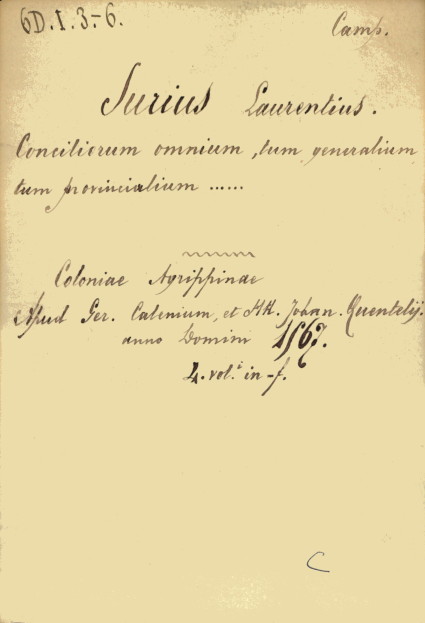 6D.I.3-6.
Camp.
Surius Laurentius.
Conciliorum omnium, tum generalium
tum provincialium ......
Coloniae Agrippinae
Apud Ger. Calenium, et HH. Johan. Quentelij.
anno Domini 1567.
4. vol.i in-f.
C